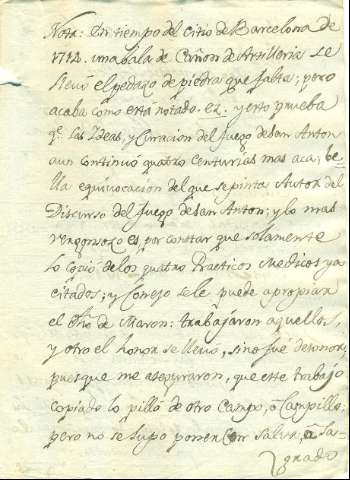 Nota: En tiempo del citio de Barcelona de
1712. una bala de Cañon de Artilleria se
llevó el pedazo de piedra que falta; pero
acaba como esta notado. ez. y esto prueba
qe. las Ideas, y Curacion del fuego de san Anton
aun continuó quatro Centurias mas aca; be-
lla equivocacion del que se pinta Autor del
Discurso del fuego de san Anton; y lo mas
vergonsoso es por constar que solamente
lo copió de los quatro Practicos Medicos ya
citados; y Conejo se le puede apropiar
el de Maron: trabajaron aquellos,
y otro el honor se llevó, sino fué desonor,
pues que me aseguraron, que este trabajo
copiado lo pilló de otro Campo, ó Campillo;
pero no se supo poner en Salvo, ó Sa-
grado